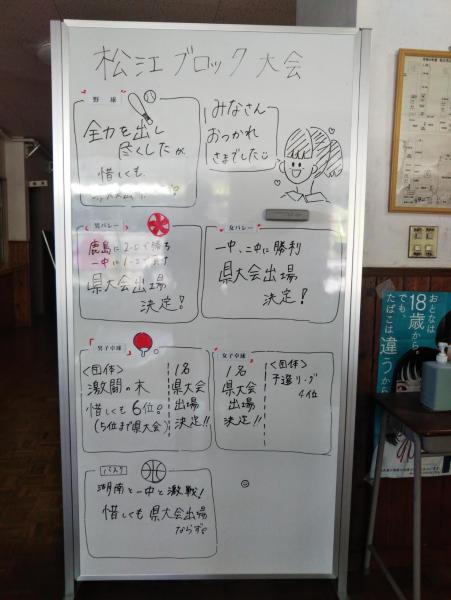 松江ブロック大会
野球
全力を出し
尽くしたが
惜しくも
みなさん
おつかれ
さまでした
男バレー
鹿島に2-0で勝ち
一中に
県大会出場
決定!
女バレー
一中、二中に勝利
県大会出場
決定!
男子卓球
<団体>
激闘の末
惜しくも6位。
(5位まで県大会)
1名
県大会
出場
決定!!
女子卓球
1名
県大会
出場
決定!!
<団体>
予選リーグ
4位
バスケ
湖南と一中と激戦!
惜しくも県大会出場
ならず
おとなは
18歳から。
でも、
たばこは違うから